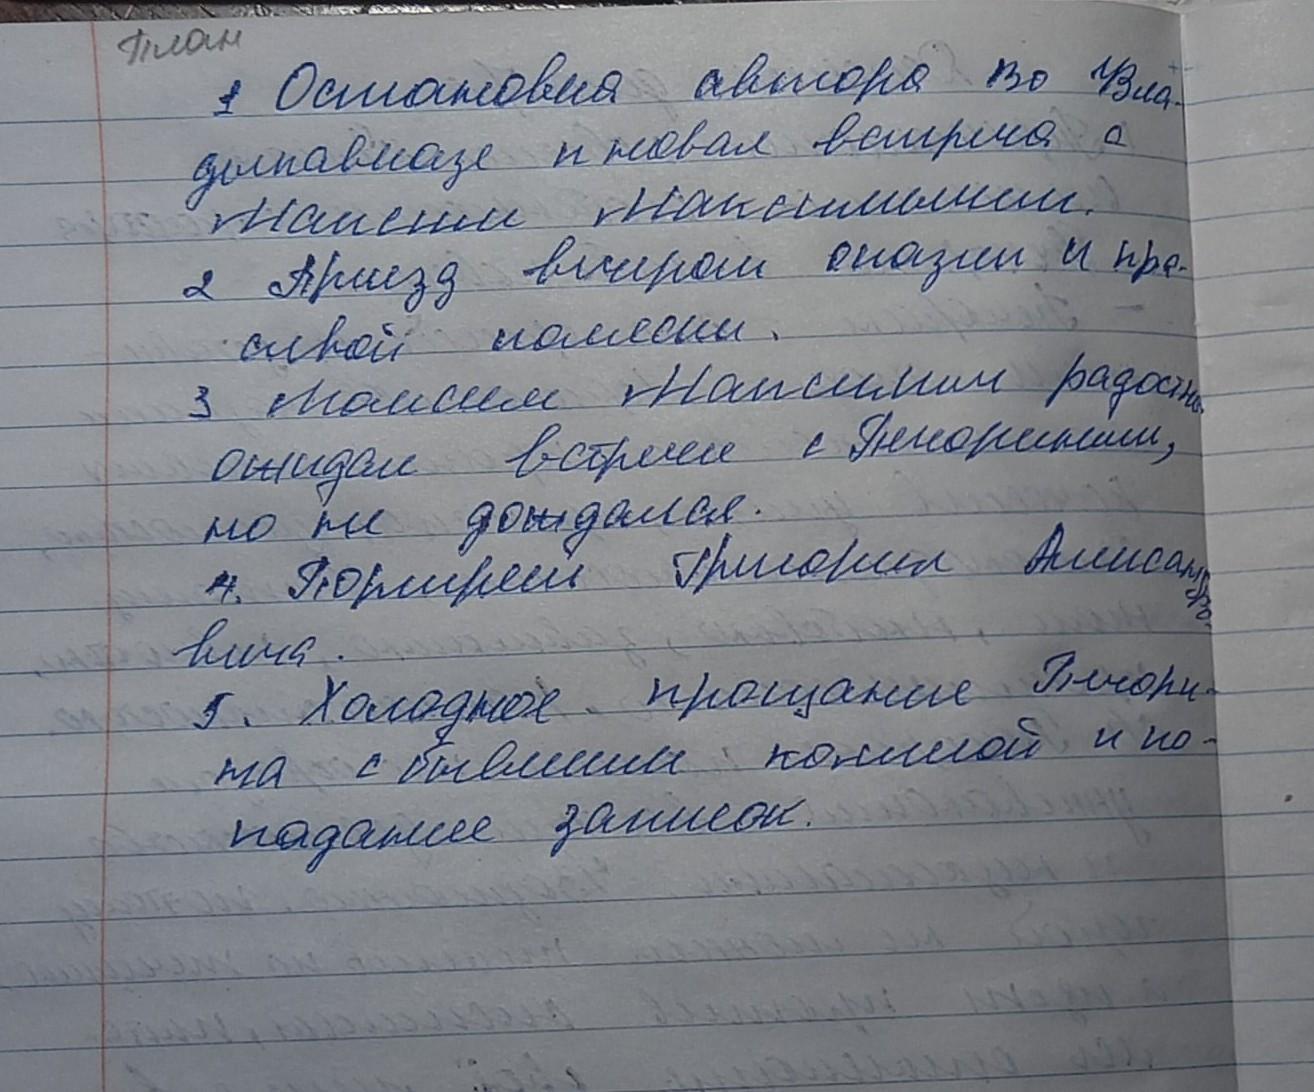 План
1 Остановка автора во Вла-
дикавказе и новая встреча с
Максим Максимычем.
2 Приезд вечером оказии и кра-
сивой коляски.
3 Максим Максимыч радостно
ожидал встречи с Печориным,
но не дождался.
4. Портрет Григория Александро-
вича.
5. Холодное прощание Печори-
на с бывшим коллегой и по-
падание записок.